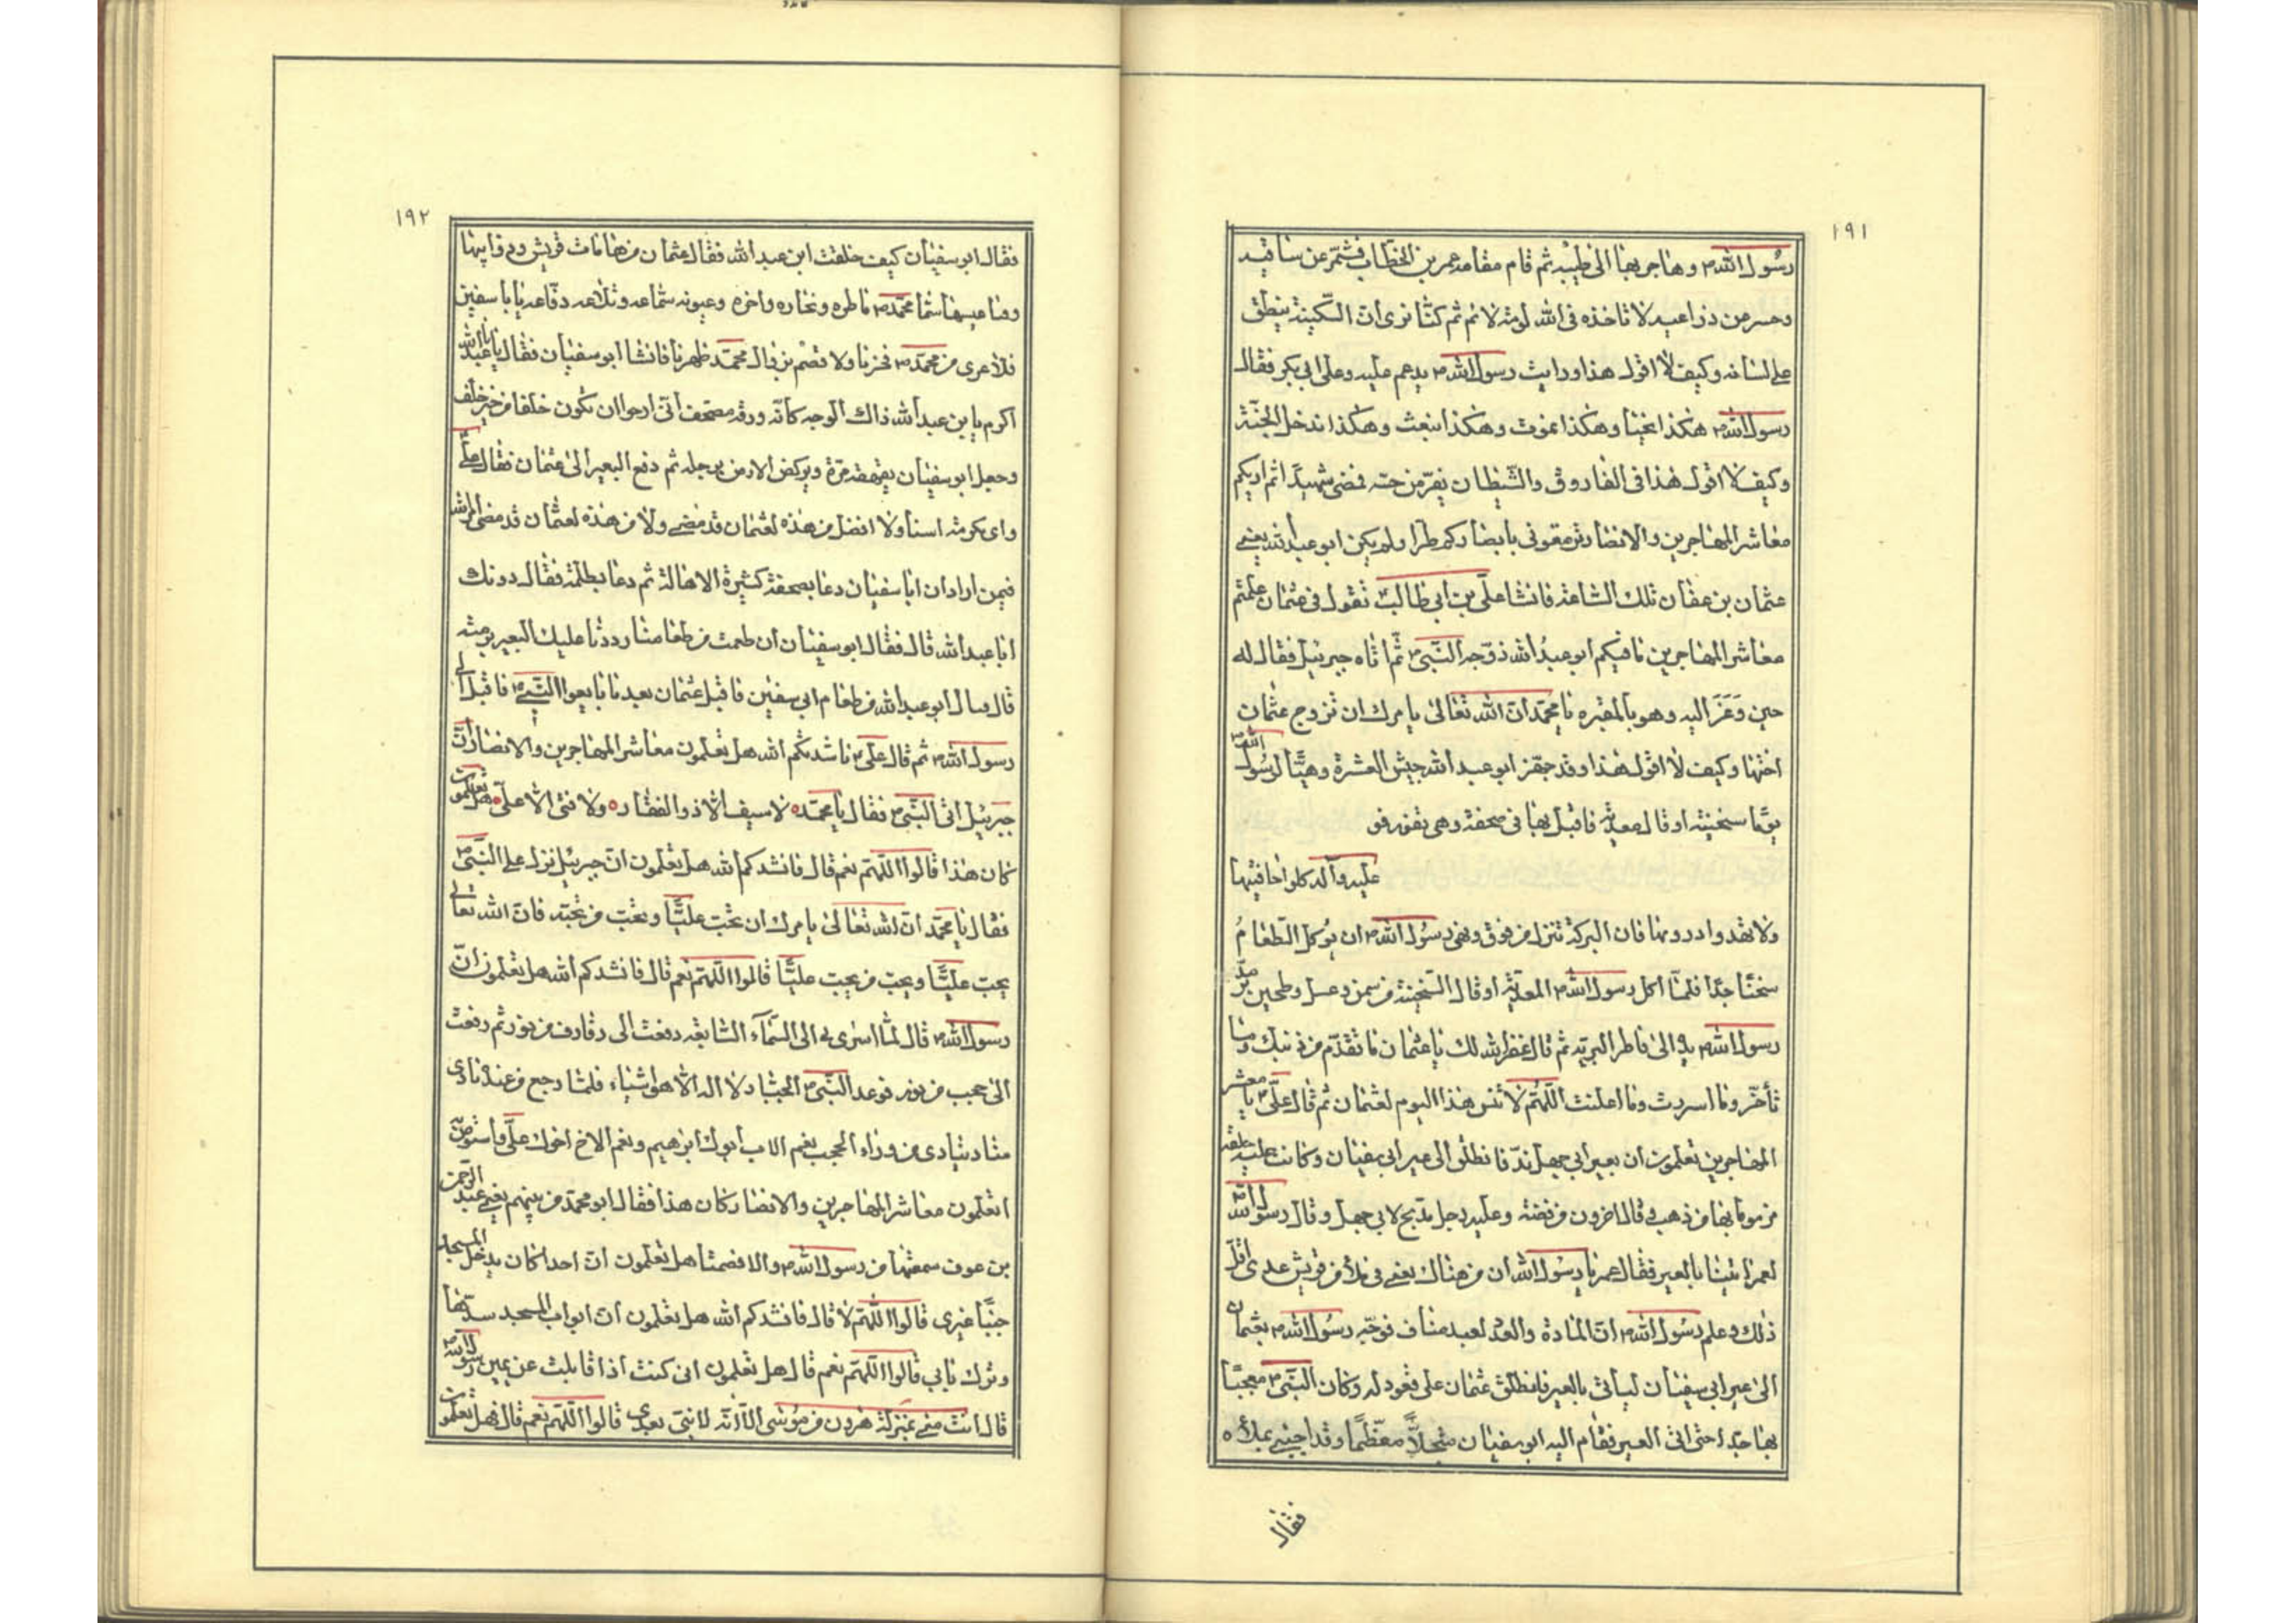 ١٩١
رسول الله ص وهاجر بها الى طيبه ثم قام مقامه عمر بن الخطاب فشمر عن ساقيه
وحسر عن ذراعيه لا تاخذه في الله لومة لائم ثم كنا نرى ان السكينة ينطق
على لسانه وكيف لا اقول هذا ورايت رسول الله ص يدعم عليه وعلى ابي بكر فقال
رسول الله ص هكذا نحيا وهكذا نموت وهكذا نبعث وهكذا ندخل الجنة
وكيف لا اقول هذا في الفاروق والشيطان يفر من حسه فمضى شهيدا ثم اريكم
معاشر المهاجرين والانصار ترمقوني بابصاركم طرا ولم يكن ابو عبد الله يعني
عثمان بن عفان تلك الساعة فانشا علي بن ابي طالب ع نقول في عثمان علمتم
معاشر المهاجرين ما فيكم ابو عبد الله زوجه النبي ص ثم اتاه جبرئيل فقال له
حين وعز اليه وهو بالمقبره يا محمد ان الله تعالى يامرك ان تزوج عثمان
اختها وكيف لا اقول هذا وقد جهز ابو عبد الله جيش العشرة وهيا لرسول الله ص
يوما سخينه او قال فاقبل بها في صحفة وهي تفور فو
عليه وآله كلوا حافيتها
ولا تهدوا دروتها فان البركة تنزل من فوق ونهى رسول الله ص ان يؤكل الطعام
سخنا جدا فلما اكل رسول الله ص او قال السخينة من سمن وعسل وطحين مد
رسول الله ص يده الى فاطر البريه ثم قال غفر الله لك يا عثمان ما تقدم من ذنبك وما
تأخر وما اسررت وما اعلنت اللهم لا تنس هذا اليوم لعثمان ثم قال علي ع يا معشر
المهاجرين تعلمون ان بعير ابي جهل ند فانطلق الى عير ابي سفيان وكانت عليه حلقة
مزموما بها من ذهب وقال اخرون من فضة وعليه رجل مدبج لابي جهل وقال رسول الله ص
لعمر ايتنا بالعير فقال عمر يا رسول الله ان من هناك يعني في ملأ من قريش عدى اقل
ذلك وعلم رسول الله ص ان المادة والعدد لعبد مناف فوجه رسول الله ص بعثمان
الى عير ابي سفيان لياتي بالعير فانطلق عثمان على قعود له وكان النبي ص معجبا
بها جدا حتى اتى العير فقام اليه ابو سفيان متجلا معظما وقد اجتبى بملأه
فقال
١٩٢
فقال ابو سفيان كيف خلفت ابن عبد الله فقال عثمان من هامات قريش وذوايبها
محمد ص وعيونه يا ابا سفين
فلا عرى من محمد ص فخرنا ولا قصم بزوال محمد ظهرنا فانشا ابو سفيان فقال يا ابا عبد الله
اكرم بابن عبد الله ذاك الوجه كانه ورقة مصحف اني ارجوا ان يكون خلفا من خير خلف
وجعل ابو سفيان مرة ويركض الارض برجله ثم دفع البعير الى عثمان فقال علي
واي مكرمة اسنا ولا افضل من هذه لعثمان قد مضى ولا من هذه لعثمان قد مضى
فيمن اراد ان ابا سفيان دعا بصحفة كثيرة الاهالة ثم دعا فقال دونك
ابا عبد الله قال فقال ابو سفيان ان طعمت من طعامنا رددنا عليك البعير برمته
قال فنال ابو عبد الله من طعام ابي سفين فاقبل عثمان بعد ما بايعوا النبي ص فاقبل الى
رسول الله ص ثم قال علي ع ناشدتكم الله هل تعلمون معاشر المهاجرين والانصار ان
جبرئيل اتى النبي ص فقال يا محمد ه لا سيف الا ذو الفقار ه ولا فتى الا علي ه هل تعلمون
كان هذا قالوا اللهم نعم قال فانشدكم الله هل تعلمون ان جبرئيل نزل على النبي ص
فقال يا محمد ان الله تعالى يامرك ان تحب عليا وتحب من يحبه فان الله تعالى
يحب عليا ويحب من يحب عليا قالوا اللهم نعم قال فانشدكم الله هل تعلمون ان
رسول الله ص قال لما اسرى بي الى السماء السابعه دفعت الى رفارف من نور ثم دفعت
الى حجب من نور فوعد النبي ص الجبار لا اله الا هو اشياء فلما رجع من عنده نادى
مناد ينادى من وراء الحجب نعم الاب ابوك ابرهيم ونعم الاخ اخوك علي واستوص
اتعلمون معاشر المهاجرين والانصار كان هذا فقال ابو محمد من بينهم يعني عبد الرحمن
بن عوف سمعتها من رسول الله ص والا فصمتا هل تعلمون ان احدا كان يدخل المسجد
جنبا غيري قالوا اللهم لا قال فانشدكم الله هل تعلمون ان ابواب المسجد سدها
وترك بابي قالوا اللهم نعم قال هل تعلمون اني كنت اذا قابلت عن يمين رسول الله
قال انت مني بمنزلة هرون من موسى الا انه لا نبي بعدي قالوا اللهم نعم قال فهل تعلمون